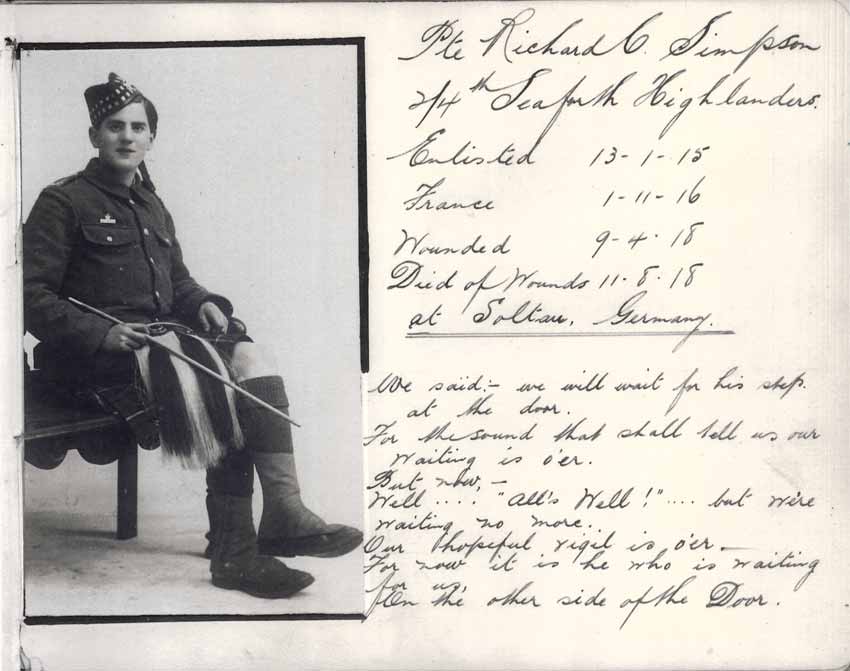 Pte Richard C. Simpson
2/4th Seaforth Highlanders.
Enlisted 13-1-15
France 1-11-16
Wounded 9-4-18
Died of Wounds 11-8-18
at Soltau, Germany.
We said:- we will wait for his step
at the door.
For the sound that shall tell us our
waiting is o'er.
But now, -
Well .... "All's Well!" .... but we're
waiting no more..
Our hopeful vigil is o'er -
For now it is he who is waiting
for us,
On the other side of the Door.